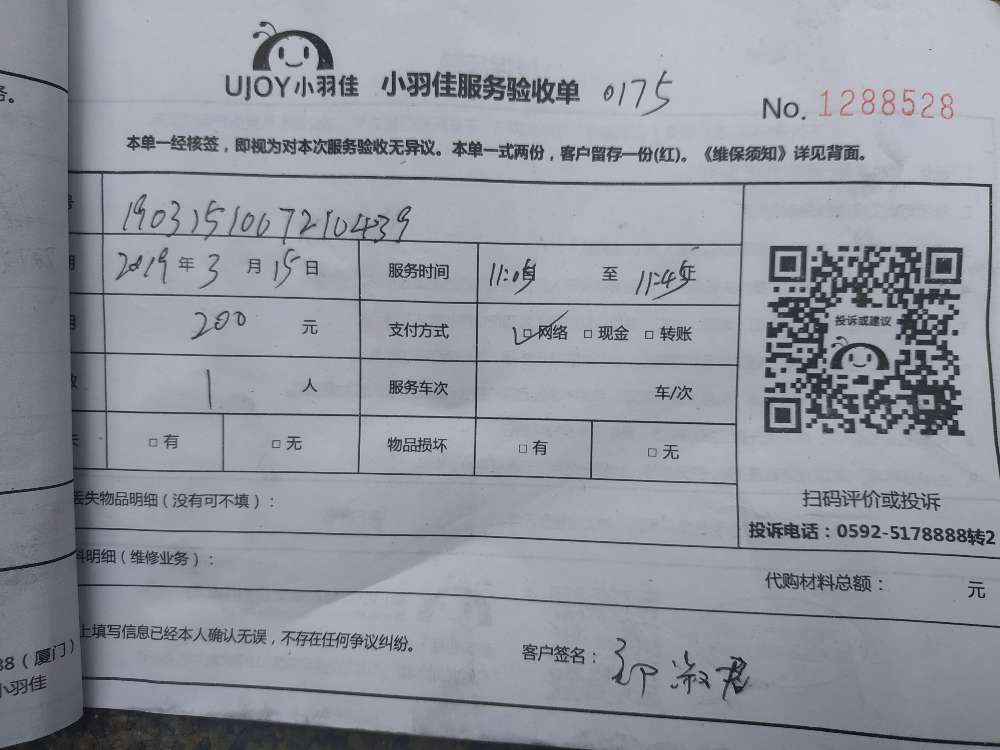 务。
UJOY小羽佳 小羽佳服务验收单 0175
No. 1288528
本单一经核签，即视为对本次服务验收无异议。本单一式两份，客户留存一份(红)。《维保须知》详见背面。
号 1903151007210439
期 2019年3月15日 服务时间 11:05 至 11:45
用 200元 支付方式 □网络 □现金 □转账
数 1人 服务车次 车/次
失 □有 □无 物品损坏 □有 □无
投诉或建议
扫码评价或投诉
投诉电话：0592-5178888转2
丢失物品明细（没有可不填）：
料明细（维修业务）：
代购材料总额： 元
上填写信息已经本人确认无误，不存在任何争议纠纷。
客户签名：
88（厦门）
小羽佳